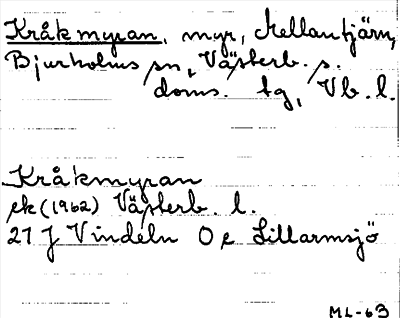 Kråkmyran, myr, Mellantjärn,
Bjurholms sn, Västerb. s.
doms. tg, Vb. l.
Kråkmyran
ek (1962) Västerb. l.
21 J Vindeln O e Lillarmsjö
ML-63